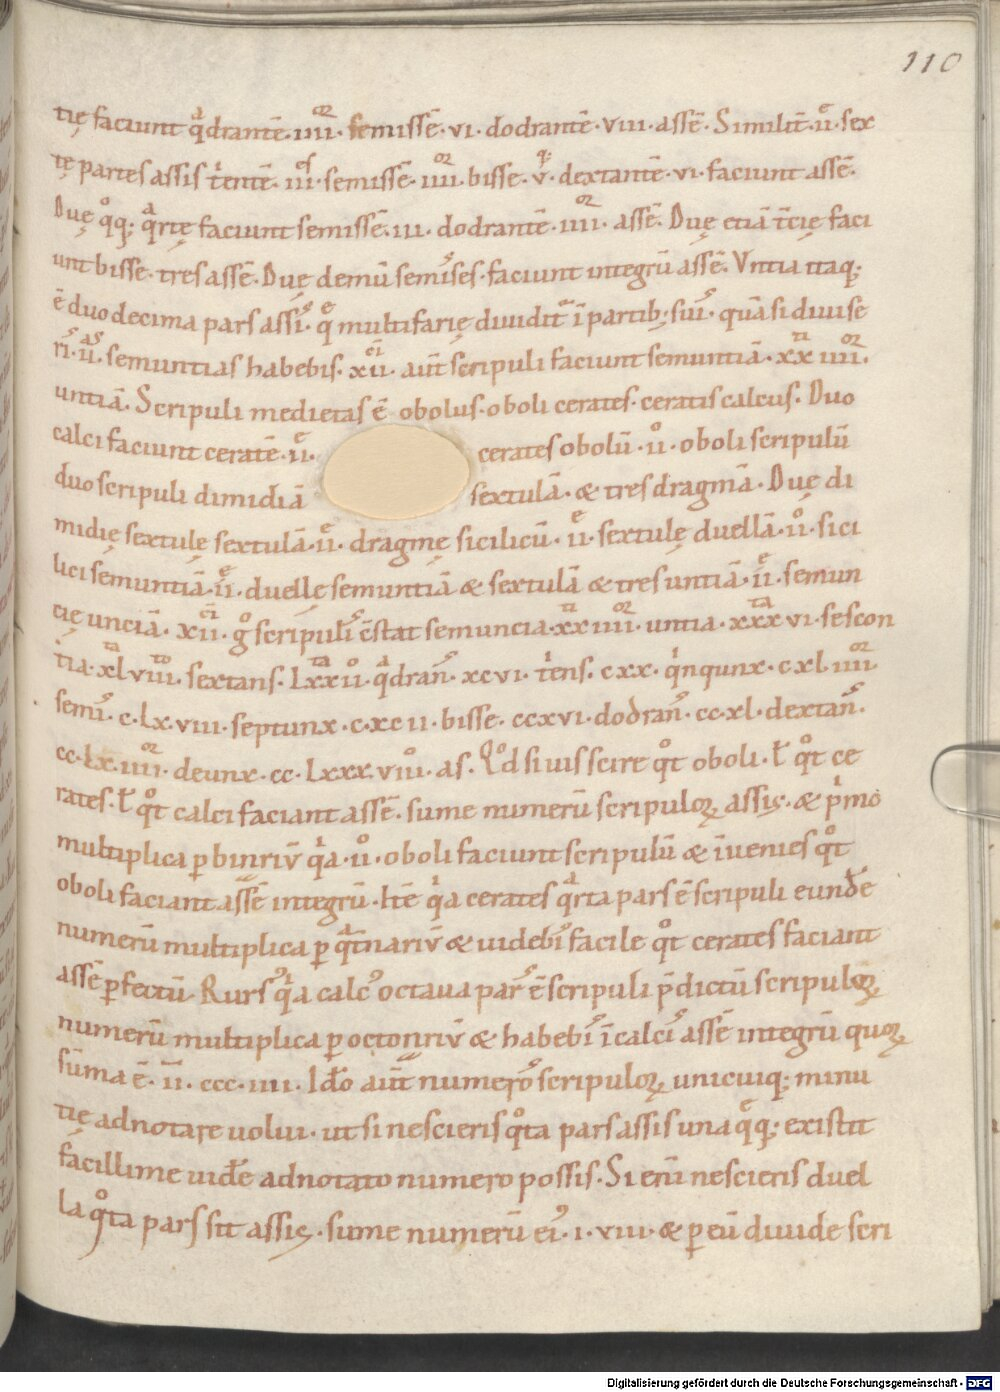 110
tię faciunt q̄drantē. iiii. semissē. vi. dodrantē. viii. assē. Similit̄. ii. sex
tę partes assis t̄entē. iii. semissē. iiii. bisse. v. dextantē. vi. faciunt assē.
Duę qͦq; qͣrtę faciunt semissē. iii. dodrantē. iiii. assē. Duę etiā t̄cię faci
unt bisse. tres assē. Duę demū semises. faciunt integrū assē. Vntia itaq;
ē duodecima pars assis. q̄ multifarię diuidit̄ ī partib; suis. quā si diuise
ris. ii. semuntias habebis. xii. aūt scripuli faciunt semuntiā. xx iiii.
untiā. Scripuli medietas ē obolus. oboli cerates. ceratis calcus. Duo
calci faciunt ceratē. ii. cerates obolū. ii. oboli scripulū
duo scripuli dimidiā sextulā. & tres dragmā. Duę di
midię sextulę sextulā. ii. dragmę sicilicū. ii. sextulę duellā. ii. sici
lici semuntiā. ii. duellę semuntiā & sextulā & tres untiā. ii. semun
cię unciā. xii. gͦ scripulis c̄stat semuncia. xx iiii. untia. xxx vi. sescon
tia. xl viii. sextans. Lxx ii. qͣdrans. xc vi. t̄ens. c xx. qͥnqunx. c xl iiii.
semis. c. Lx. viii. septunx. c. xc ii. bisse. cc xvi. dodrans. cc. xl. dextans.
cc. Lx. iiii. deunx. cc. Lxxx. viii. as. Qͦd si uis scire qͦt oboli. ł qͦt ce
rates. ł qͦt calci faciant assē. sume numerū scripuloꝝ assis. & pͥmo
multiplica ꝑ binriū qͥa. ii. oboli faciunt scripulū & īuenies qͦt
oboli faciant assē integrū. Itē qͥa cerates qͣrta pars ē scripuli eundē
numerū multiplica ꝑ qͣt̄nariū & uidebis facile qͦt cerates faciant
assē ꝑfectū. Rursꝰ qͥa calcꝰ octaua pars ē scripuli p̄dictū scripuloꝝ
numerū multiplica ꝑ octonriū & habebis ī calcis assē integrū quoꝝ
sūma ē. ii. ccc. iiii. Idͦo aūt numeros scripuloꝝ unicuiq; minu
tię adnotare uolui. ut si nescieris qͦta pars assis una q̄q; existit
facillime uidē adnotato numero possis. Si enī nescieris duel
la qͦta pars sit assis. sume numerū eiꝰ. i. viii. & ꝑ eū diuide scri
Digitalisierung gefördert durch die Deutsche Forschungsgemeinschaft - DFG